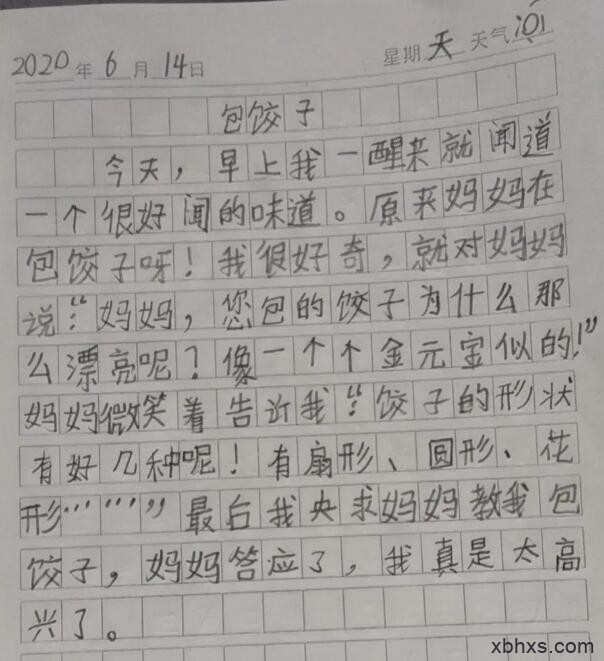 2020年6月14日 星期天 天气
包饺子
今天，早上我一醒来就闻道
一个很好闻的味道。原来妈妈在
包饺子呀！我很好奇，就对妈妈
说：“妈妈，您包的饺子为什么那
么漂亮呢？像一个个金元宝似的！”
妈妈微笑着告诉我：“饺子的形状
有好几种呢！有扇形、圆形、花
形……”最后我央求妈妈教我包
饺子，妈妈答应了，我真是太高
兴了。
xbhxs.com